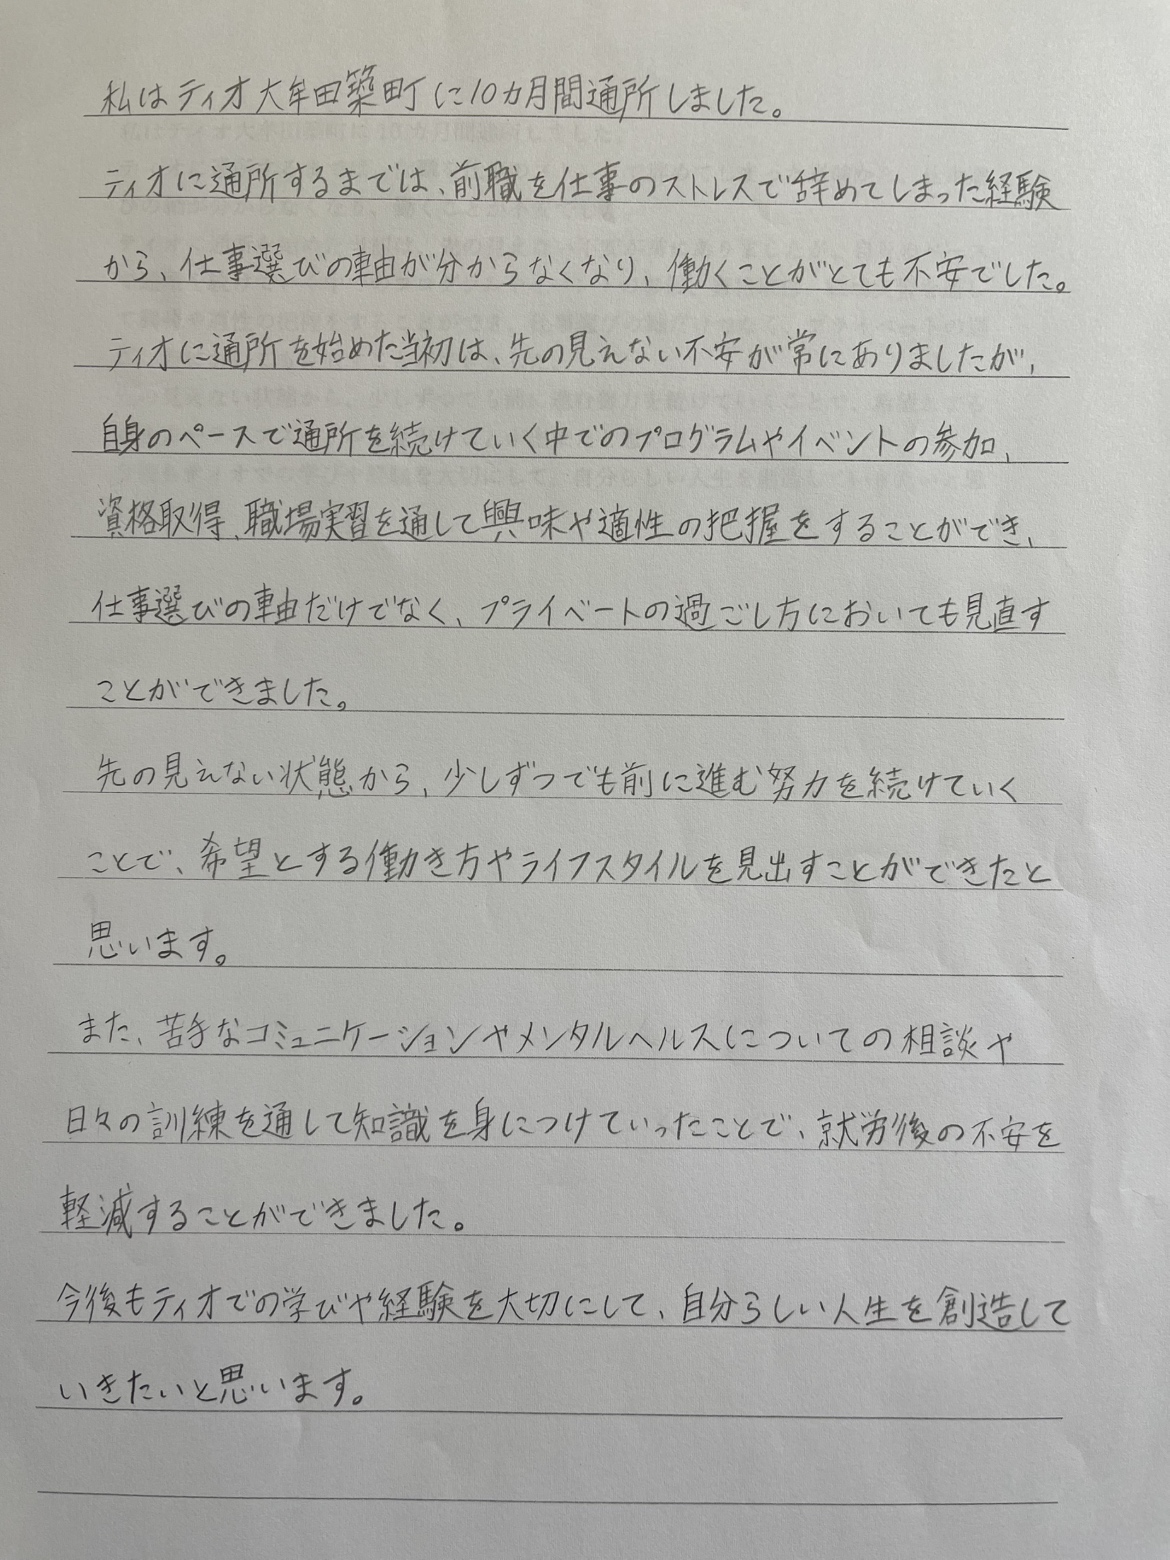 私はティオ大牟田築町に10カ月間通所しました。
ティオに通所するまでは、前職を仕事のストレスで辞めてしまった経験
から、仕事選びの軸が分からなくなり、働くことがとても不安でした。
ティオに通所を始めた当初は、先の見えない不安が常にありましたが、
自身のペースで通所を続けていく中でのプログラムやイベントの参加、
資格取得、職場実習を通して興味や適性の把握をすることができ、
仕事選びの軸だけでなく、プライベートの過ごし方においても見直す
ことができました。
先の見えない状態から、少しずつでも前に進む努力を続けていく
ことで、希望とする働き方やライフスタイルを見出すことができたと
思います。
また、苦手なコミュニケーションやメンタルヘルスについての相談や
日々の訓練を通して知識を身につけていったことで、就労後の不安を
軽減することができました。
今後もティオでの学びや経験を大切にして、自分らしい人生を創造して
いきたいと思います。